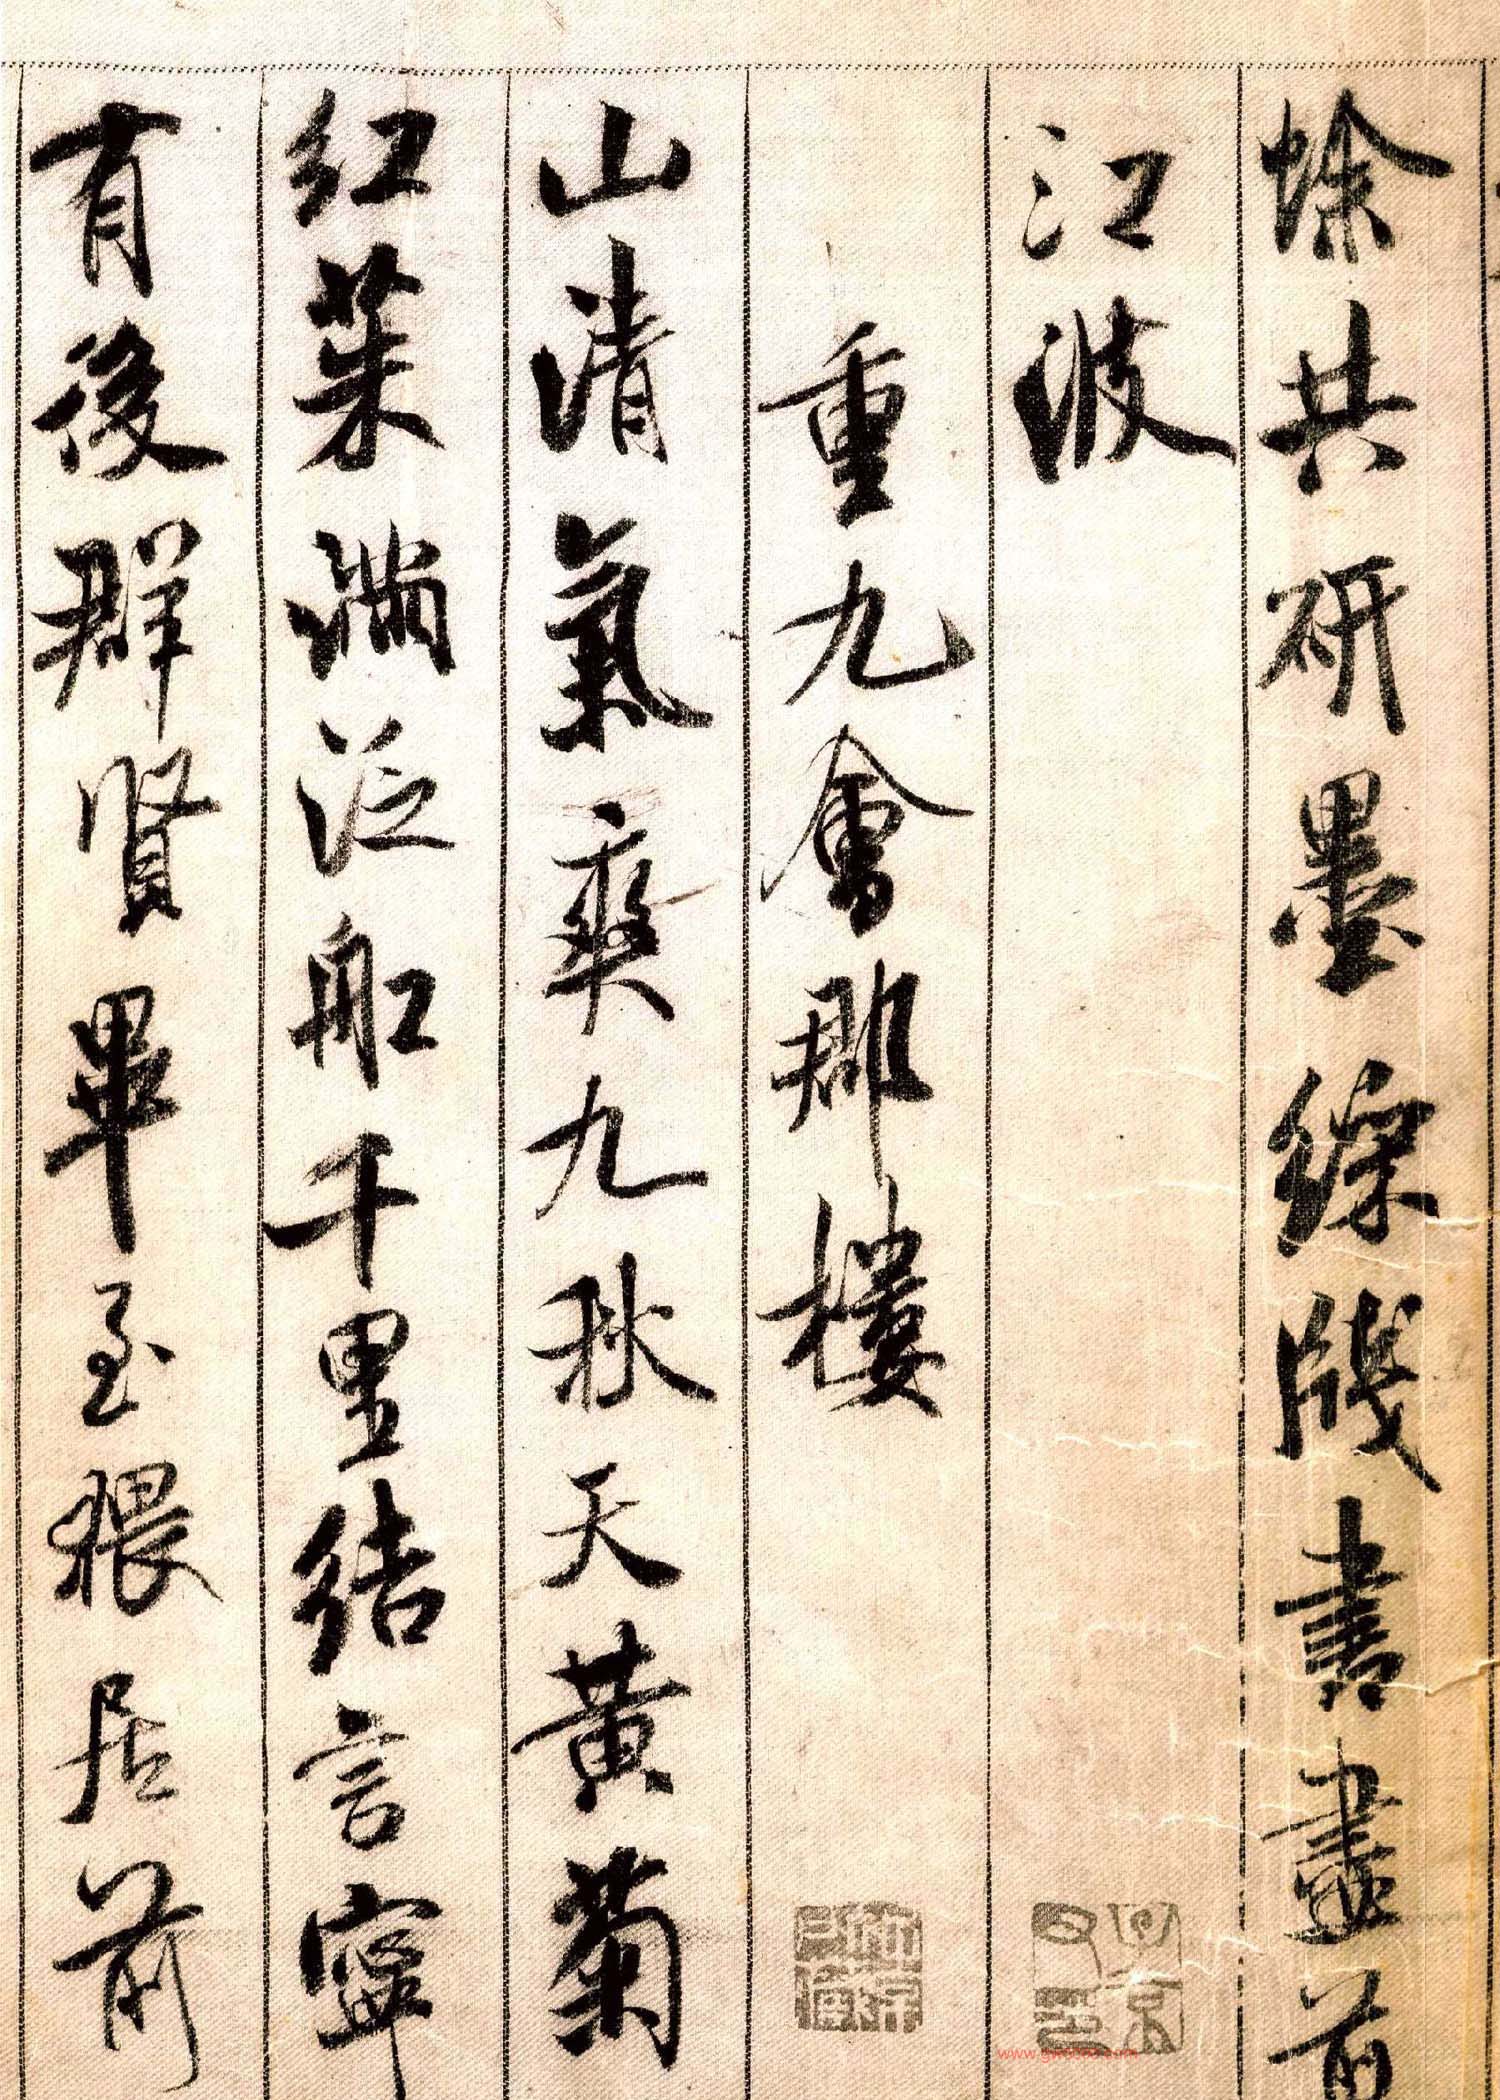 蜍共研墨綵牋書盡剪
江波
重九會郡樓
山清氣爽九秋天黃菊
紅茱滿泛舡千里結言寧
有後群賢畢至猥居前